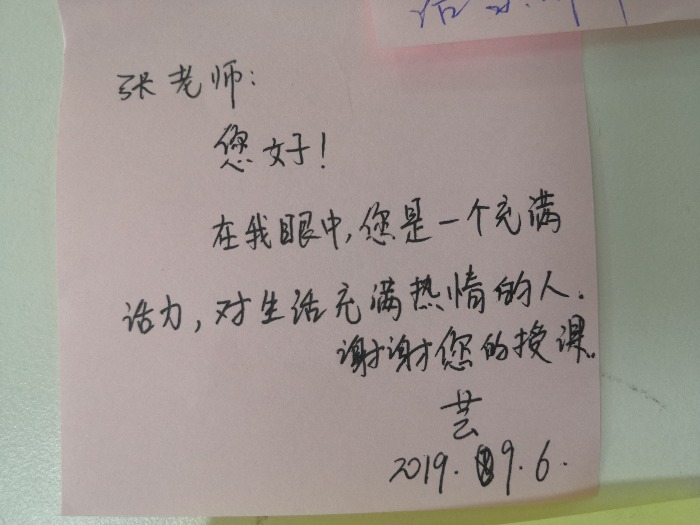 张老师:
您好!
在我眼中,您是一个充满
活力,对生活充满热情的人.
谢谢您的授课.
芸
2019.9.6.